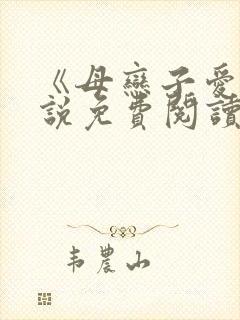 《母戀子愛
說免費閱讀
韦農山